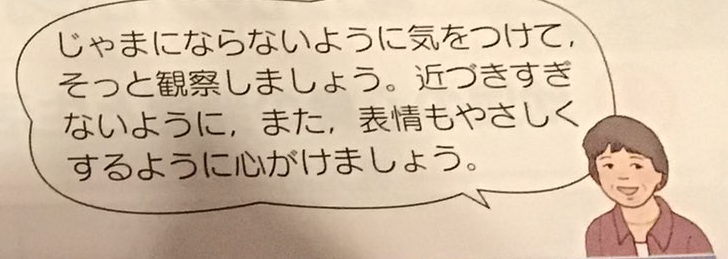 じゃまにならないように気をつけて，
そっと観察しましょう。近づきすぎ
ないように，また，表情もやさしく
するように心がけましょう。